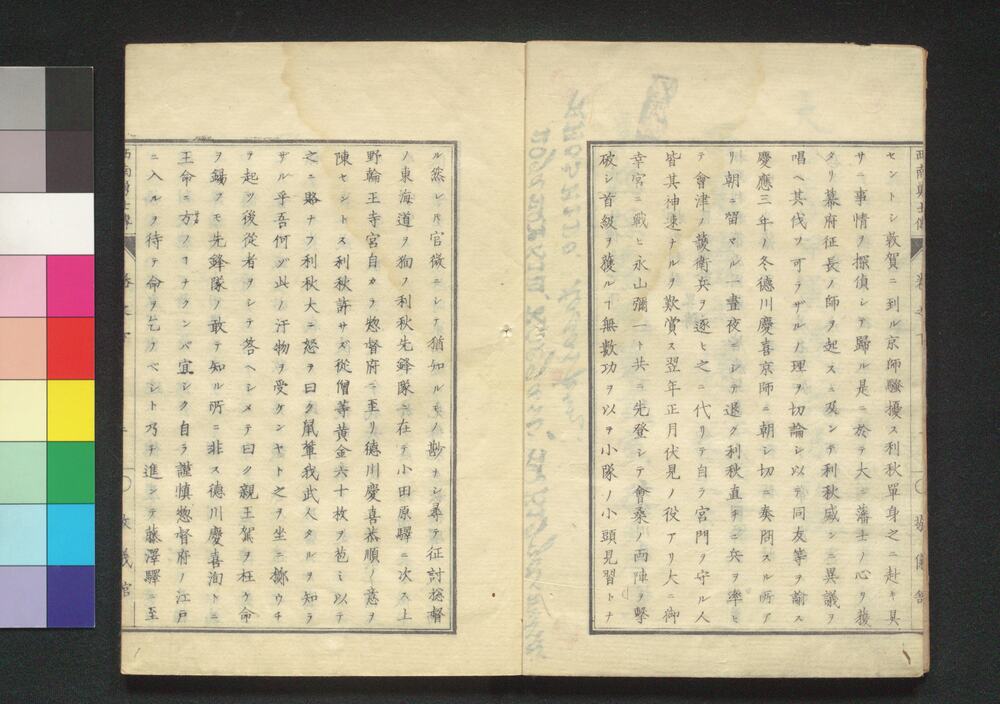 セントシ敦賀ニ到ル京師騷擾ス利秋單身之ニ赴キ具
サニ事情ヲ探偵シテ歸ル是ニ於テ大ニ藩士ノ心ヲ獲
タリ幕府征長ノ師ヲ起スニ及ンテ利秋盛ンニ異議ヲ
唱ヘ其伐ツ可ラザルノ理ヲ切論シ以テ同友等ヲ諭ス
慶應三年ノ冬德川慶喜京師ニ朝シ切ニ奏問スル所ア
リ朝ニ留マル一晝夜ニシテ退ク利秋直チニ兵ヲ率ヒ
テ會津ノ護衛兵ヲ逐ヒ之ニ代リテ自ラ宮門ヲ守ル人
皆其神速ナルヲ歎賞ス翌年正月伏見ノ役アリ大ニ御
幸宮ニ戰ヒ永山彌一ト共ニ先登シテ會桑ノ両陣ヲ擊
破シ首級ヲ獲ルヿ無數功ヲ以ヲ小隊ノ小頭見習トナ
ル然レ𪜈官微ニシテ猶知ルモノ尠ナシ尋テ征討捴督
ノ東海道ヲ狥ノ利秋先鋒隊ニ在テ小田原驛ニ次ス上
野輪王寺宮自カラ惣督府ニ至リ德川慶喜恭順ノ意ヲ
陳セントス利秋許サズ從僧等黃金六十枚ヲ苞ミ以テ
之ニ賂ナフ利秋大ニ怒ヲ曰ク鼠輩我武人タルヲ知ラ
ザル乎吾何ゾ此ノ汗物ヲ受ケンヤト之ヲ坐ニ擲ウチ
テ起ツ後從者ヲシテ答ヘシメテ曰ク親王駕ヲ枉ケ命
ヲ錫フモ先鋒隊ノ敢テ知ル所ニ非ス德川慶喜洵トニ
王命ニ方ノコナクンバ宜シク自ラ謹愼惣督府ノ江戸
ニ入ルヲ待テ命ヲ乞フベシト乃チ進ンテ藤澤驛ニ至